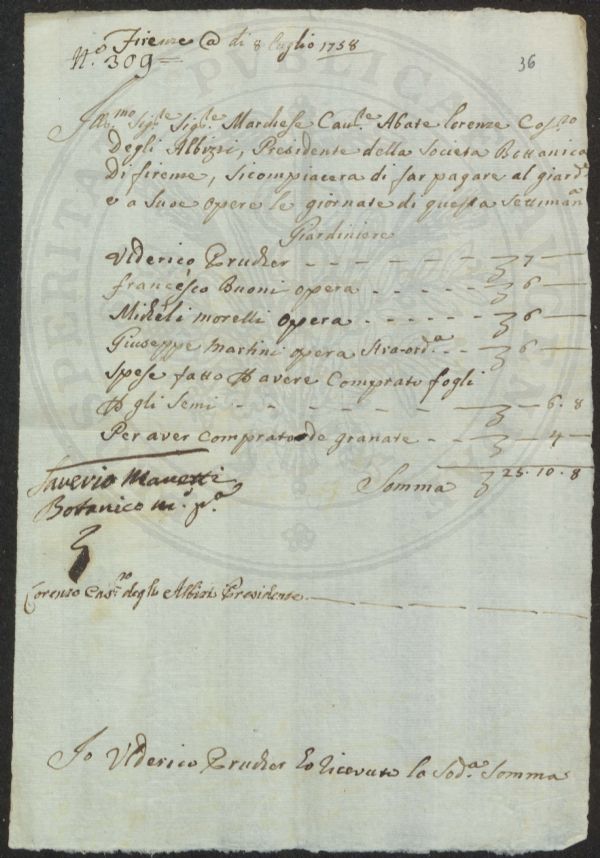 Firenze @ di 8 Luglio 1758
N.º 309 =
36
Ill.mo Sig.re Sig.re Marchese Cav.re Abate Lorenzo Cos.no
Degli Albizzi, Presidente della Societa Bottanica
Di firenze, si compiacera di far pagare al giard.e
e a Sue opere le giornate di questa Settimana
Giardiniere
Vlderico Prucker - - - - - - - 7 —
francesco Buoni opera - - - - - 6 —
Micheli morelli opera - - - - - 6 —
Giuseppe Martini opera stra-ord.a - - 6 —
Spese fatto P avere Comprato fogli
P gli Semi - - - - - - - — 6. 8
Per aver Comprato de granate - - — 4 —
Somma 25. 10. 8
Saverio Manetti
Botanico m.o p.a
Lorenzo Cas.no degli Albizi Presidente
Io Vlderico Prucker ho ricevuto la Sod.a Somma
PUBLICA